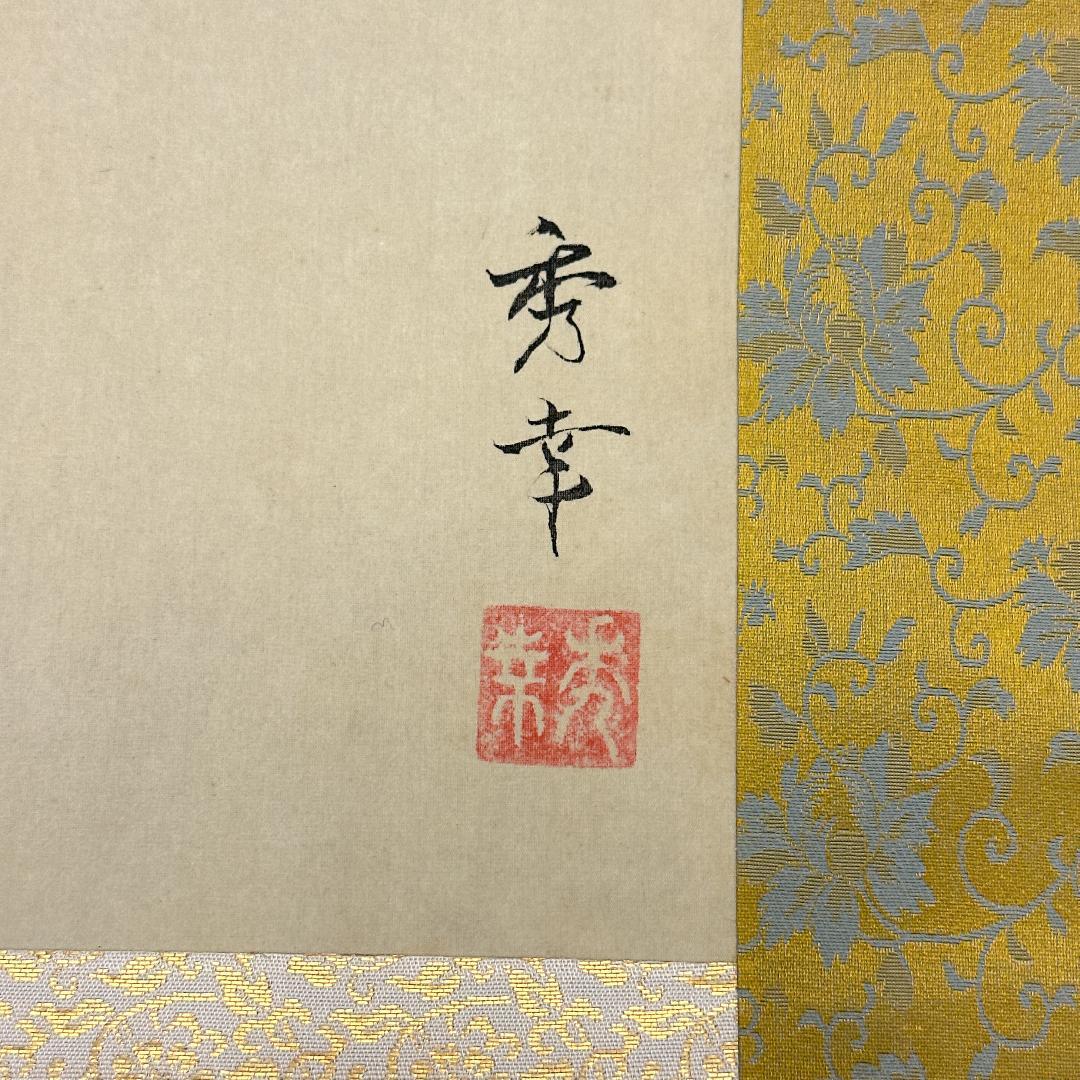 秀幸
秀幸